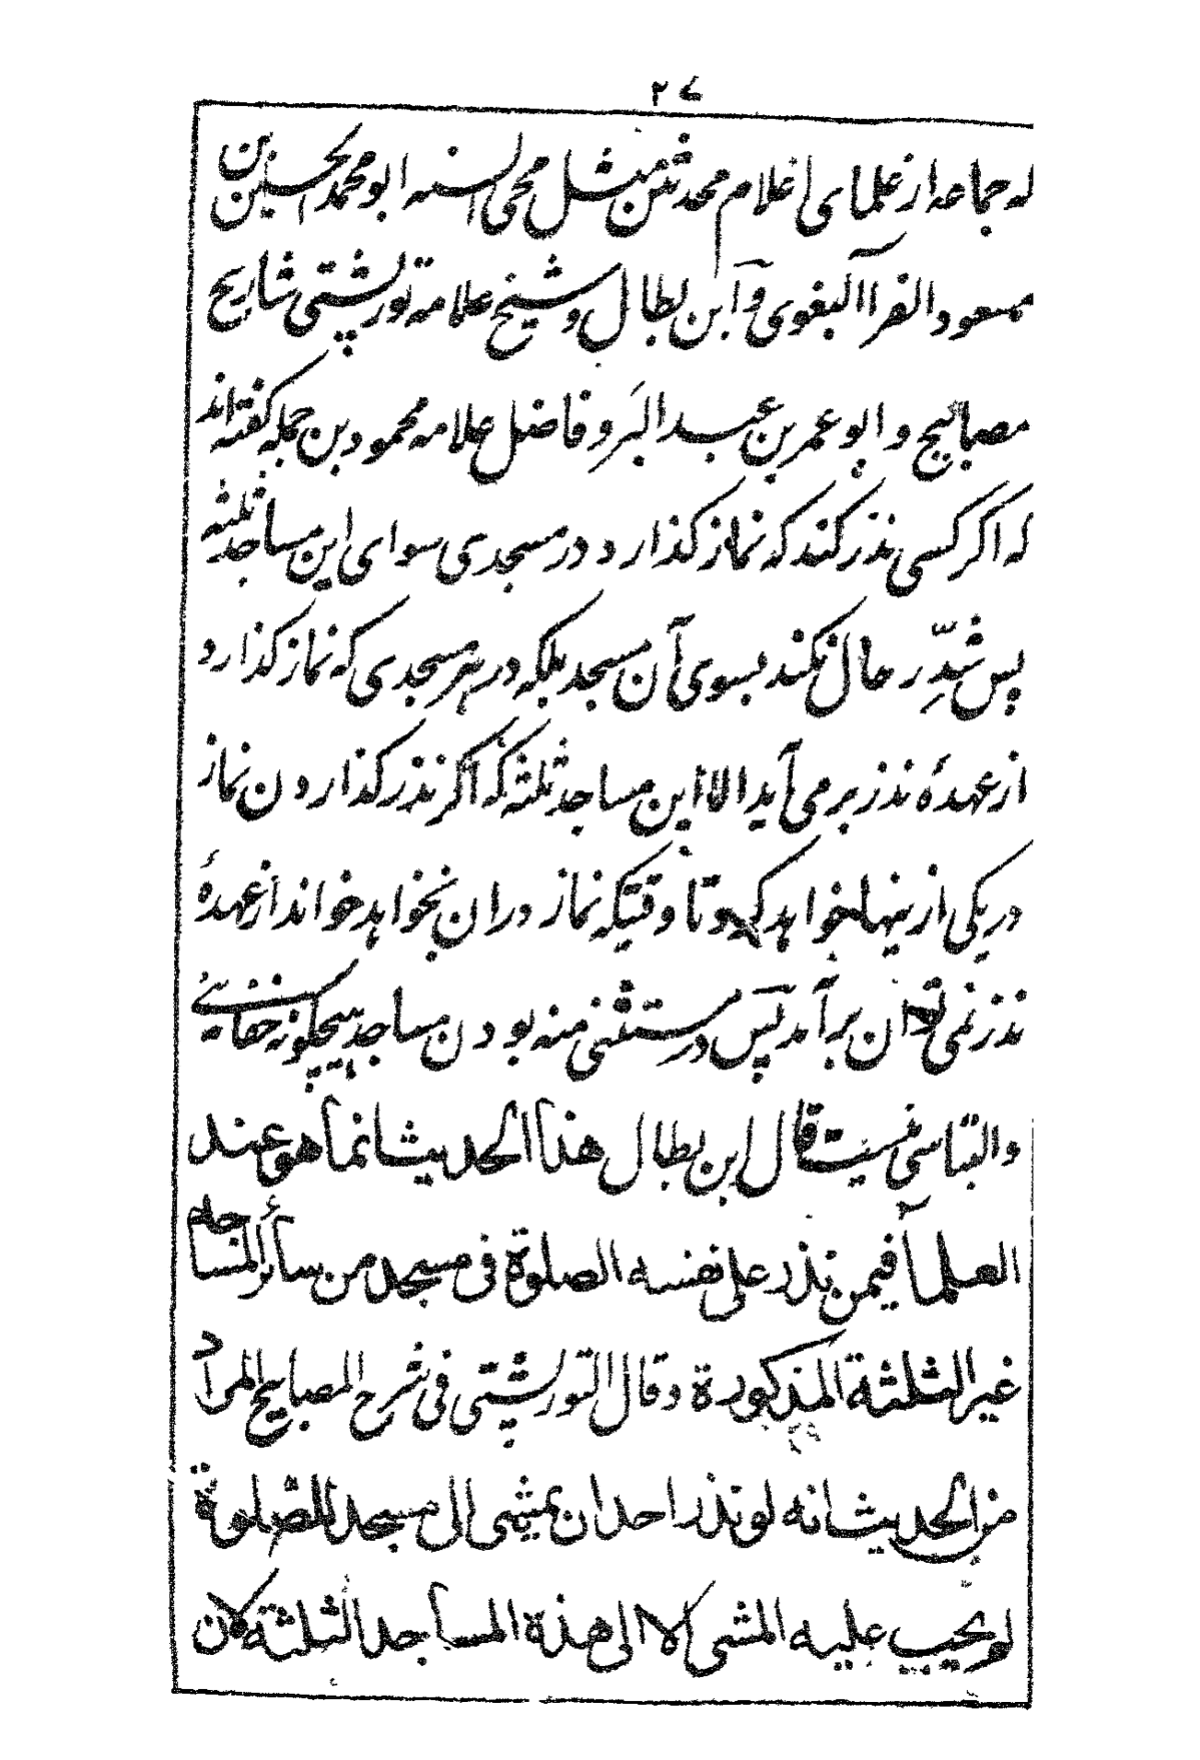 ۲۷
له جماعه از علمای اعلام محدثین مثل محی السنه ابو محمد الحسین بن
مسعود الفراء البغوی و ابن بطال و شیخ علامه تورپشتی شارح
مصابیح و ابو عمر بن عبد البر و فاضل علامه محمود بن جمله گفته اند
که اگر کسی نذر کند که نماز گذارد در مسجدی سوای این مساجد ثلثه
پس شدّ رحال نکند بسوی آن مسجد بلکه در هر مسجدی که نماز گذارد
از عهدهٔ نذر بر می آید الا این مساجد ثلثه که اگر نذر گذاردن نماز
در یکی ازینها خواهد کرد تا وقتیکه نماز دران نخواهد خواند از عهدهٔ
نذر نمی توان بر آمد پس در مستثنی منه بودن مساجد هیچگونه خفائے
والتباسی نیست قال ابن بطال هذا الحدیث انما هو عند
العلمآ فیمن نذر علی نفسه الصلوة فی مسجد من سائر المساجد
غیر الثلثة المذکورة وقال التورپشتی فی شرح المصابیح المراد
من الحدیث انه لو نذر احد ان یمشی الی مسجد للصلوة
لم یجب علیه المشی الا الی هذة المساجد الثلثة لان